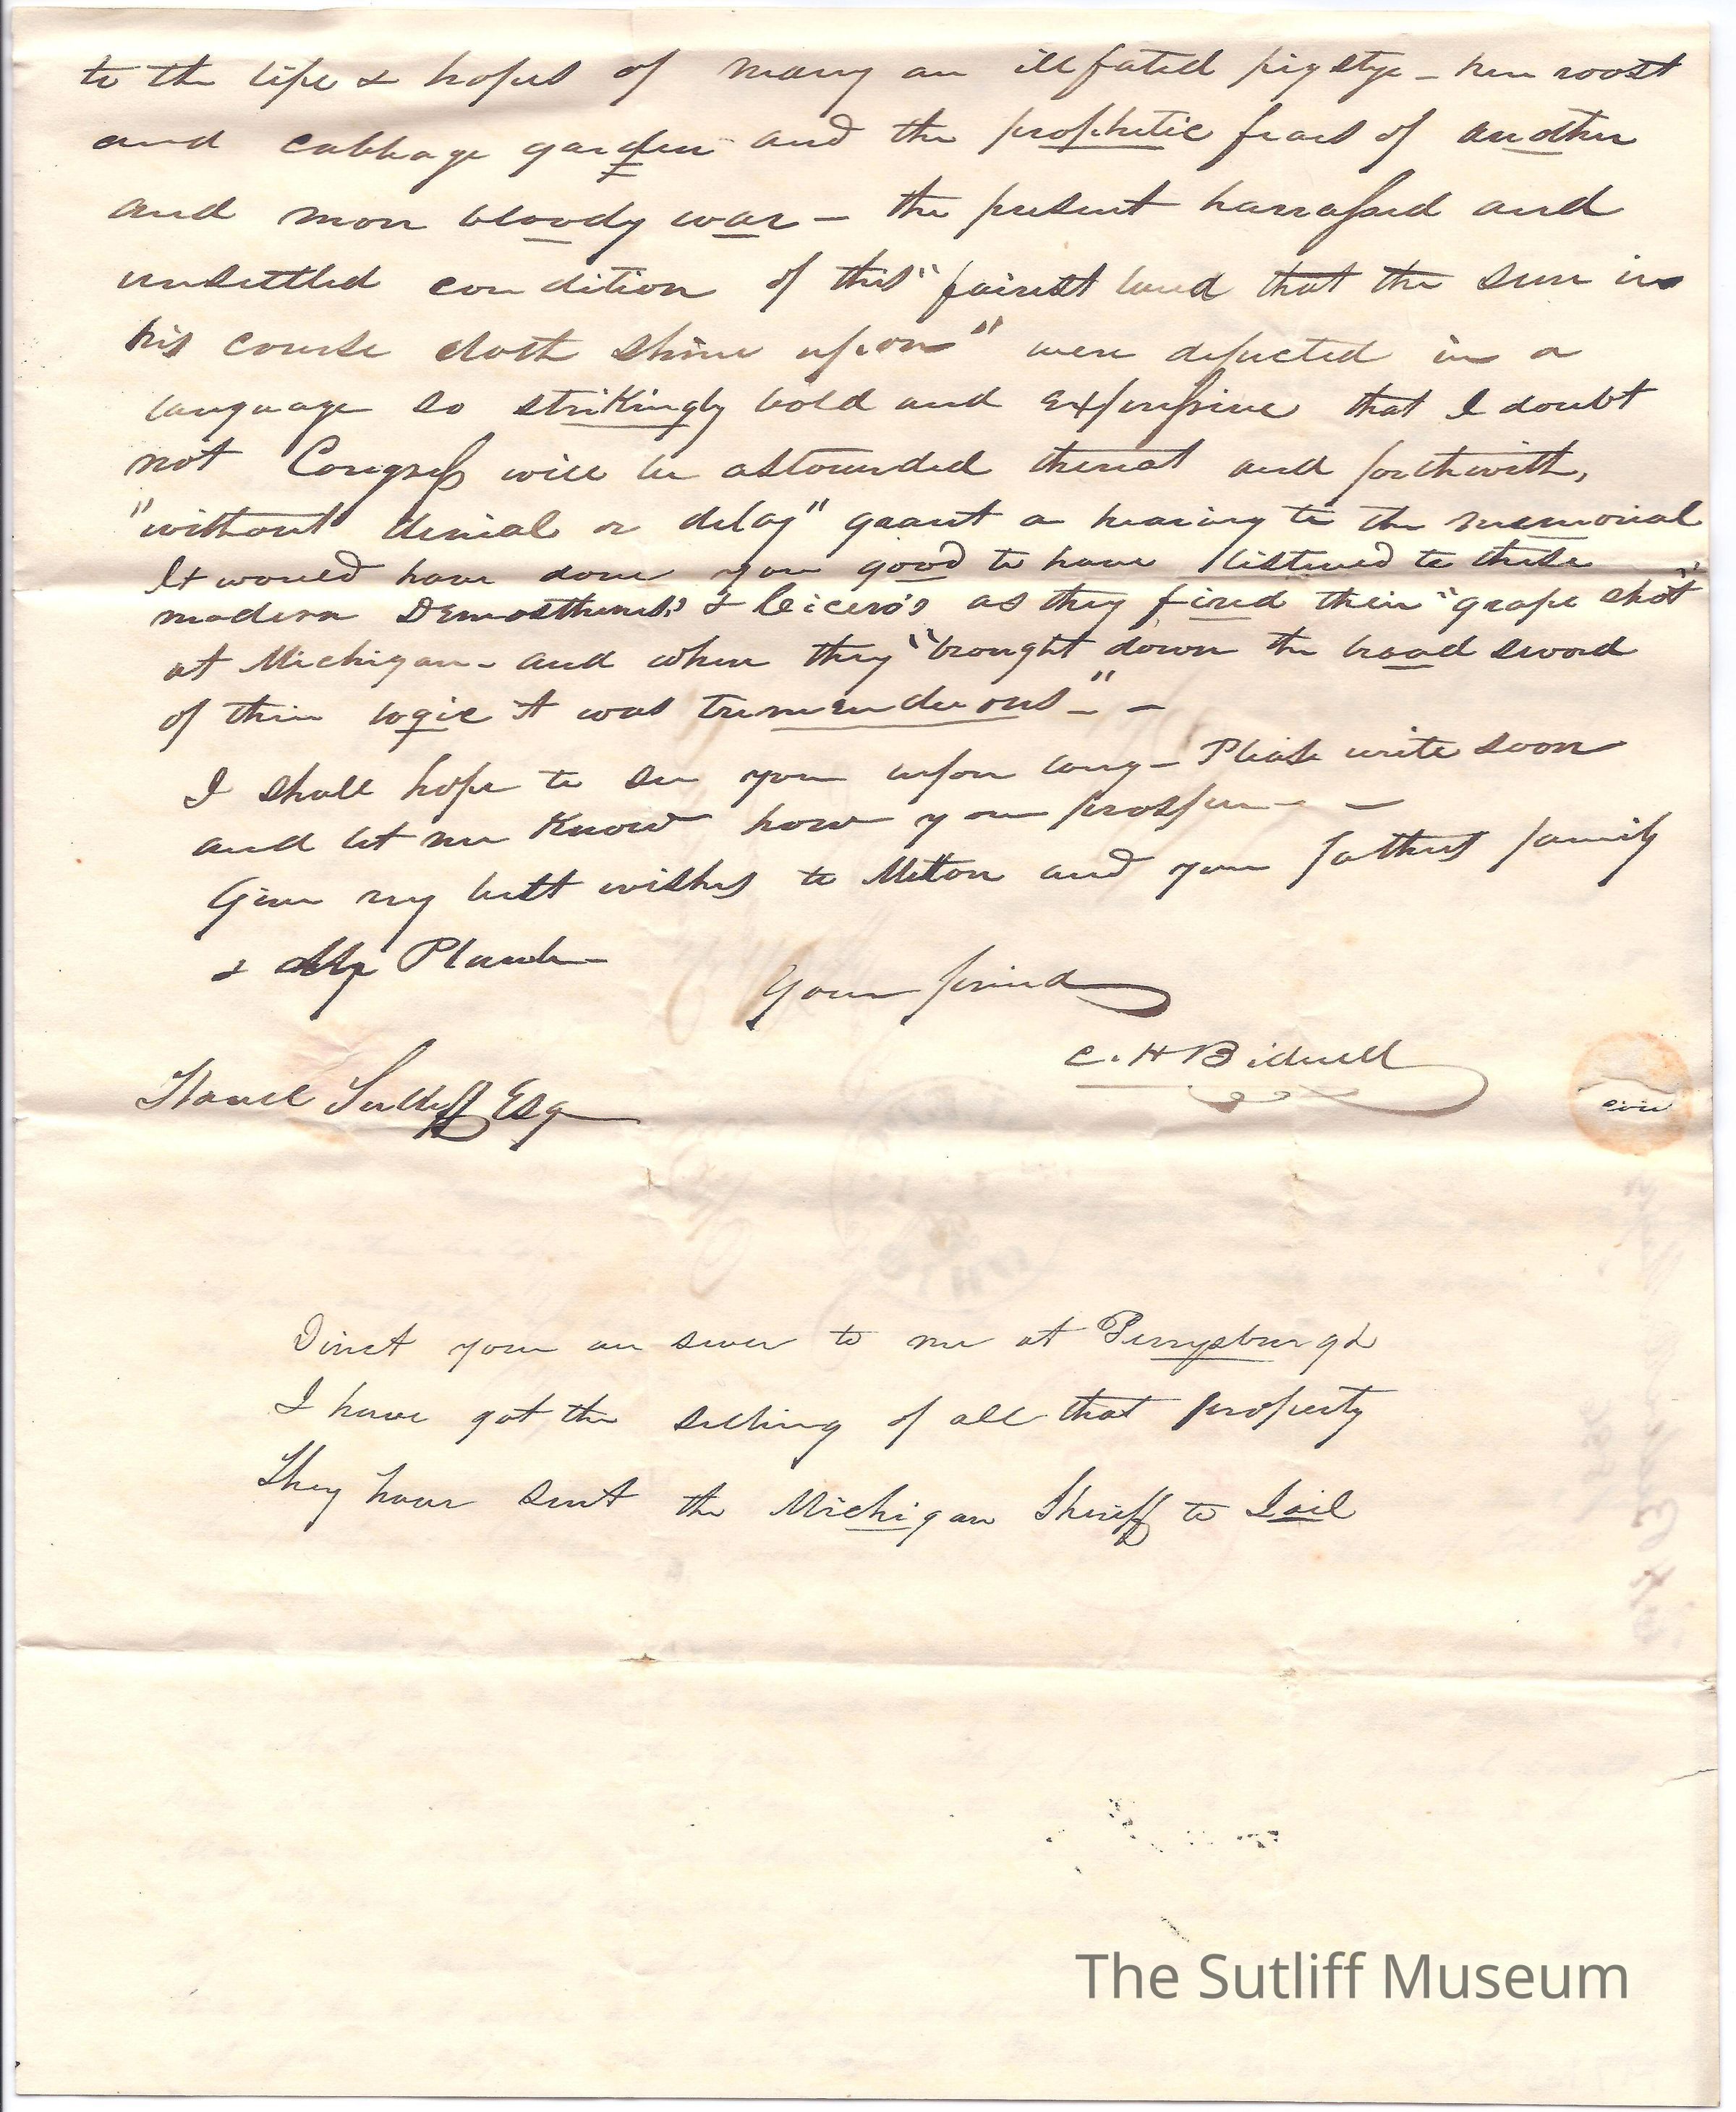 to the life & hopes of many an ill fated pigstye - hen roost
and cabbage garden and the prophetic fears of another
and more bloody war - the present harrassed and
unsettled condition of this "fairest land that the sun in
his course doth shine upon" were depicted in a
language so strikingly bold and expressive that I doubt
not Congress will be astounded thereat and forthwith,
"without denial or delay" grant a hearing to the memorial
It would have done you good to have listened to these
modern Demosthenes's & Cicero's as they fired their "grape shot"
at Michigan - and when they "brought down the broad sword
of their logic it was tremendeous" - -
I shall hope to see you before long - Please write soon
and let me know how you prosper - -
Give my best wishes to Milton and your fathers family
&
Your friend
C. H Bidwell
Flavel Sutliff Esq
Direct your answer to me at Perrysburgh
I have got the selling of all that property
They have sent the Michigan Sheriff to Jail
The Sutliff Museum